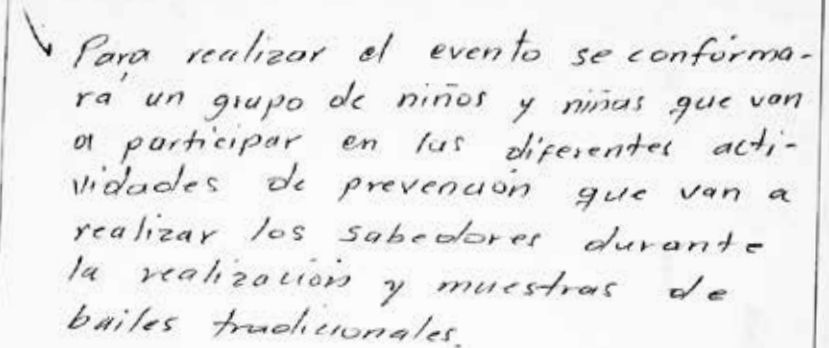 Para realizar el evento se conforma-
rá un grupo de niños y niñas que van
a participar en las diferentes acti-
vidades de prevención que van a
realizar los sabedores durante
la realización y muestras de
bailes tradicionales.